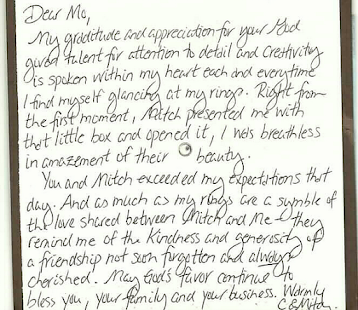 Dear Mo,
My gratitude and appreciation for your God
given talent for attention to detail and creativity
is spoken within my heart each and everytime
I find myself glancing at my rings. Right from
the first moment, Mitch presented me with
that little box and opened it, I was breathless
in amazement of their beauty.
You and Mitch exceeded my expectations that
day. And as much as my rings are a symble of
the love shared between Mitch and Me - they
remind me of the Kindness and generosity of
a friendship not soon forgotten and always
cherished. May God's favor continue to
bless you, your family and your business. Warmly
C & Mitch